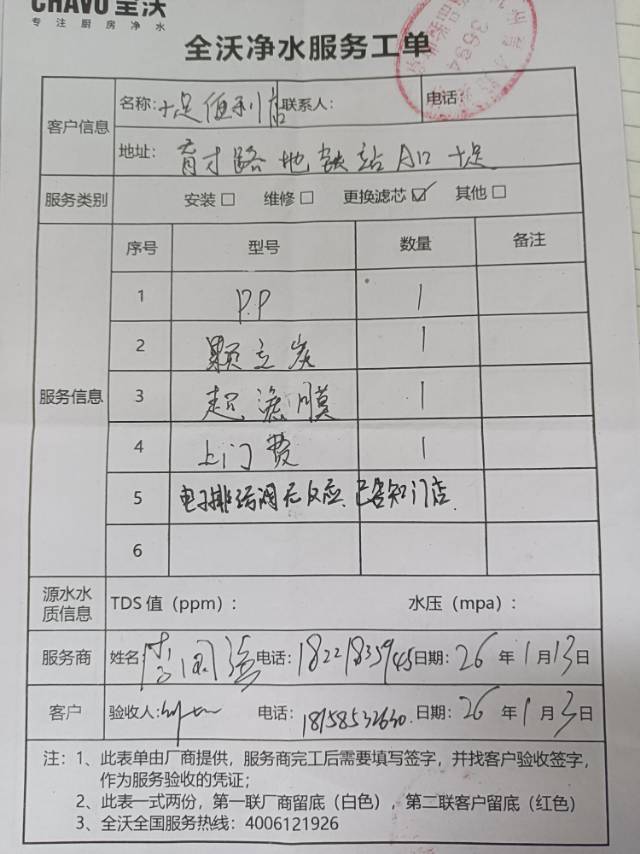 CHAVO 全沃
专注厨房净水
全沃净水服务工单
客户信息
名称：十足便利店 联系人： 电话：
地址：育才路地铁站A口十足
服务类别 安装□ 维修□ 更换滤芯☑ 其他□
服务信息
序号 型号 数量 备注
1 P.P 1
2 颗立炭 1
3 超滤膜 1
4 上门费 1
5 电子排结阀无反应.已告知门店.
6
源水水质信息 TDS 值（ppm）： 水压（mpa）：
服务商 姓名： 电话：18221835945 日期：26 年 1 月 13 日
客户 验收人： 电话：18158532630. 日期：26 年 1 月 3 日
注：1、此表单由厂商提供，服务商完工后需要填写签字，并找客户验收签字，
作为服务验收的凭证；
2、此表一式两份，第一联厂商留底（白色），第二联客户留底（红色）
3、全沃全国服务热线：4006121926